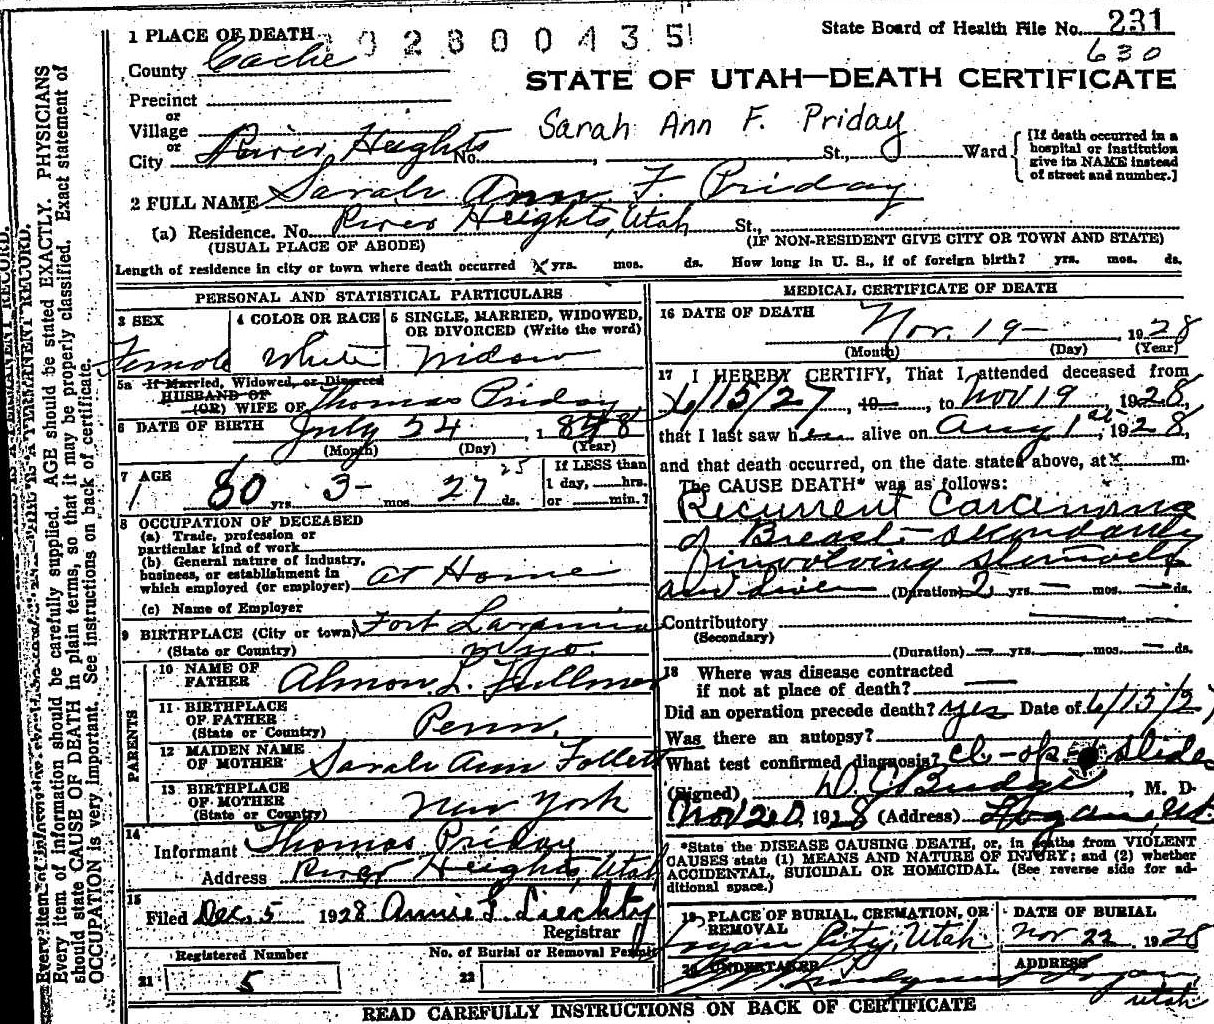 1 PLACE OF DEATH 0 2 8 0 0 4 3 5
State Board of Health File No. 231
630
County Cache
STATE OF UTAH—DEATH CERTIFICATE
Precinct
or
Village
or
Sarah Ann F. Priday
City River Heights No. , St., Ward
[If death occurred in a
hospital or institution
give its NAME instead
of street and number.]
2 FULL NAME Sarah Ann F. Priday
(a) Residence. No. River Heights, Utah St.,
(USUAL PLACE OF ABODE) (IF NON-RESIDENT GIVE CITY OR TOWN AND STATE)
Length of residence in city or town where death occurred x yrs. mos. ds. How long in U. S., if of foreign birth? yrs. mos. ds.
PERSONAL AND STATISTICAL PARTICULARS
3 SEX
Female
4 COLOR OR RACE
White
5 SINGLE, MARRIED, WIDOWED,
OR DIVORCED (Write the word)
Widow
5a If Married, Widowed, or Divorced
HUSBAND OF
(OR) WIFE OF Thomas Priday
6 DATE OF BIRTH July 24, 1848
(Month) (Day) (Year)
7 AGE
80 yrs. 3 mos. 27 25 ds.
If LESS than
1 day, hrs.
or min.?
8 OCCUPATION OF DECEASED
(a) Trade, profession or
particular kind of work
(b) General nature of industry,
business, or establishment in
which employed (or employer) At Home
(c) Name of Employer
9 BIRTHPLACE (City or town) Fort Laramie
(State or Country) Wyo.
PARENTS
10 NAME OF
FATHER Almon L. Fullmer
11 BIRTHPLACE
OF FATHER
(State or Country) Penn.
12 MAIDEN NAME
OF MOTHER Sarah Ann Follett
13 BIRTHPLACE
OF MOTHER
(State or Country) New York
14
Informant Thomas Priday
Address River Heights, Utah
15
Filed Dec. 5 1928 Annie L. Liechty
Registrar
Registered Number
21 5
No. of Burial or Removal Permit
22
MEDICAL CERTIFICATE OF DEATH
16 DATE OF DEATH
Nov. 19- 1928
(Month) (Day) (Year)
17 I HEREBY CERTIFY, That I attended deceased from
6/15/27, 19 , to Nov 19 1928,
that I last saw her alive on Aug 1st, 1928,
and that death occurred, on the date stated above, at x m.
The CAUSE DEATH* was as follows:
Recurrent Carcinoma
of Breast - secondarily
involving stomach
and Liver (Duration) 2 yrs. — mos. — ds.
Contributory
(Secondary)
(Duration) — yrs. mos. — ds.
18 Where was disease contracted
if not at place of death?
Did an operation precede death? yes Date of 6/15/27
Was there an autopsy?
What test confirmed diagnosis? cl-op. slides
(Signed) D. C. Budge, M. D.
Nov 20, 1928 (Address) Logan, Ut.
*State the DISEASE CAUSING DEATH, or, in deaths from VIOLENT
CAUSES state (1) MEANS AND NATURE OF INJURY; and (2) whether
ACCIDENTAL, SUICIDAL OR HOMICIDAL. (See reverse side for ad-
ditional space.)
19 PLACE OF BURIAL, CREMATION, OR
REMOVAL
Logan City, Utah
DATE OF BURIAL
Nov 22, 1928
20 UNDERTAKER
ADDRESS
Logan,
Utah
READ CAREFULLY INSTRUCTIONS ON BACK OF CERTIFICATE
Every item of information should be carefully supplied. AGE should be stated EXACTLY. PHYSICIANS
should state CAUSE OF DEATH in plain terms, so that it may be properly classified. Exact statement of
OCCUPATION is very important. See instructions on back of certificate.